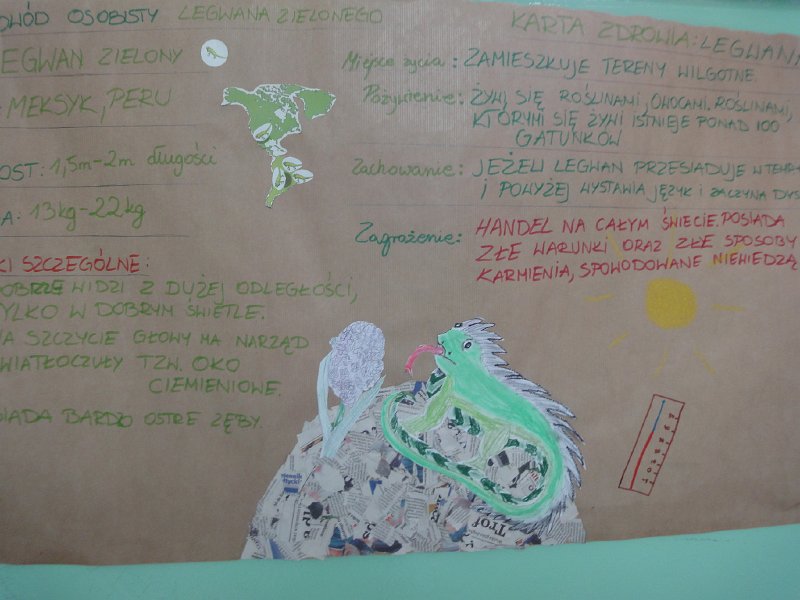 DOWÓD OSOBISTY LEGWANA ZIELONEGO
LEGWAN ZIELONY
MEKSYK, PERU
OST: 1,5m-2m długości
A: 13kg-22kg
KI SZCZEGÓLNE:
DOBRZE WIDZI Z DUŻEJ ODLEGŁOŚCI,
TYLKO W DOBRYM ŚWIETLE.
NA SZCZYCIE GŁOWY MA NARZĄD
ŚWIATŁOCZUŁY TZW. OKO
CIEMIENIOWE.
SIADA BARDZO OSTRE ZĘBY.
KARTA ZDROWIA: LEGWANA
Miejsce życia: ZAMIESZKUJE TERENY WILGOTNE
Pożywienie: ŻYWI SIĘ ROŚLINAMI, OWOCAMI. ROŚLINAMI,
KTÓRYMI SIĘ ŻYWI ISTNIEJE PONAD 100
GATUNKÓW
Zachowanie: JEŻELI LEGWAN PRZESIADUJE W TEMP
I POWYŻEJ WYSTAWIA JĘZYK I ZACZYNA DYS
Zagrożenie: HANDEL NA CAŁYM ŚWIECIE. POSIADA
ZŁE WARUNKI ORAZ ZŁE SPOSOBY
KARMIENIA, SPOWODOWANE NIEWIEDZĄ
Trof